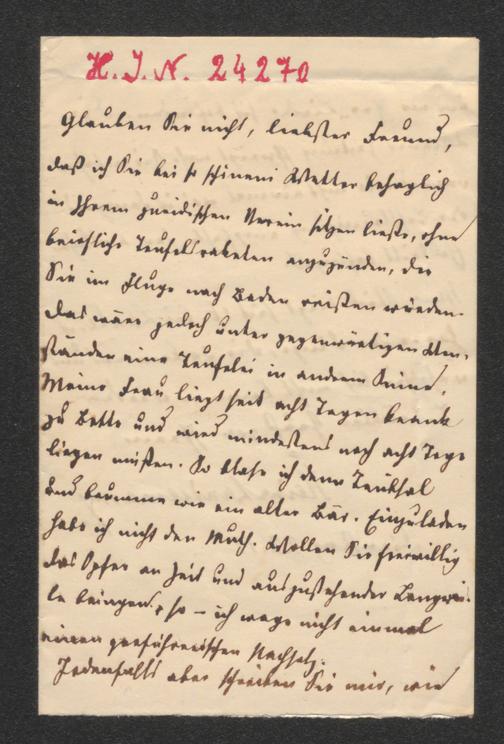 H. I. N. 24270
Glauben Sie nicht, liebster Freund,
daß ich Sie bei so schönem Wetter behaglich
in Ihrem juridischen Verein sitzen ließe, ohne
briefliche Teufelsraketen anzuzünden, die
Sie im Fluge nach Baden reißen würden.
Das wäre jedoch unter gegenwärtigen Um-
ständen eine Teufelei in anderm Sinne.
Meine Frau liegt seit acht Tagen krank
zu Bette und wird mindestens noch acht Tage
liegen müßen. So blase ich denn Trübsal
und brumme wie ein alter Bär. Einzuladen
habe ich nicht den Muth. Wollen Sie freiwillig
das Opfer an Zeit und auszustehender Langwei-
le bringen, so – ich wage nicht einmal
einen verführerischen Nachsatz.
Jedenfalls aber schreiben Sie mir, wie